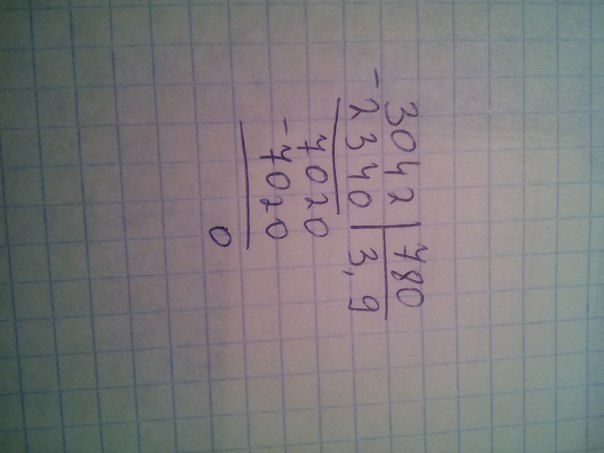 - 3042 | 780
2340 | 3,9
7020
- 7020
0